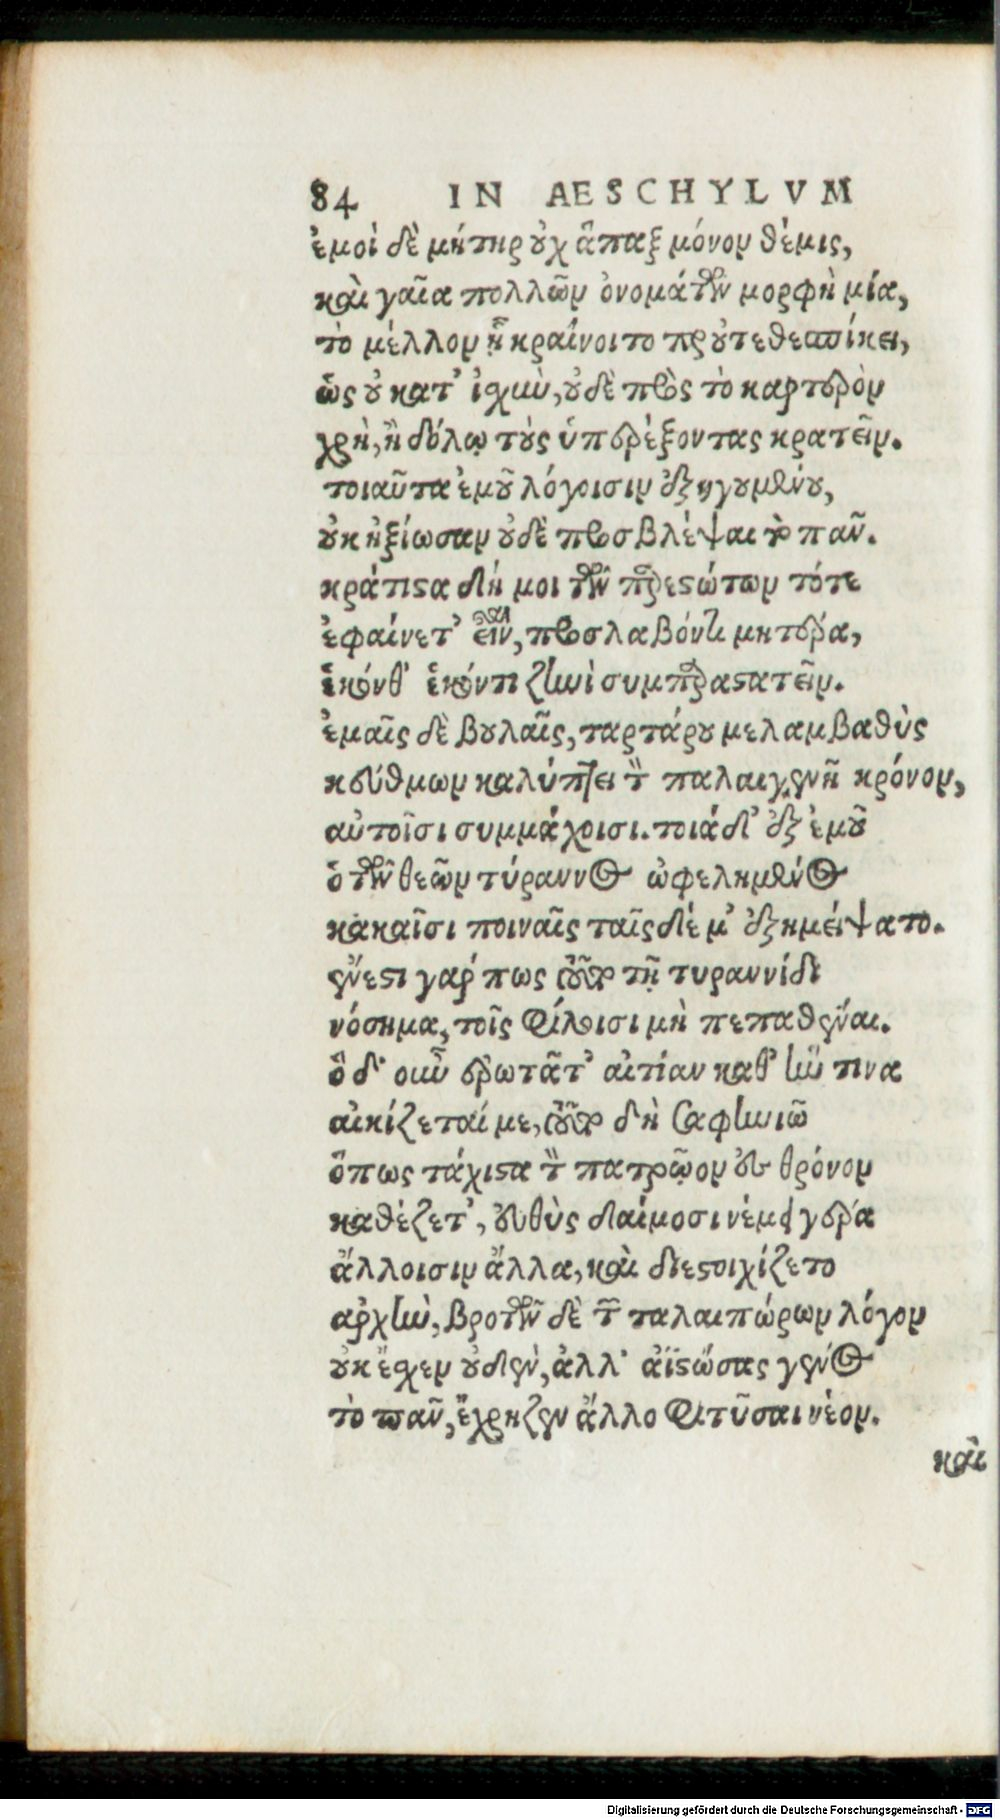 84 IN AESCHYLVM
ἐμοὶ δὲ μήτηρ οὐχ ἅπαξ μόνον θέμις,
καὶ γαῖα πολλῶν ὀνομάτων μορφὴ μία,
τὸ μέλλον ᾗ κραίνοιτο προὐτεθεσπίκει,
ὡς οὐ κατ' ἰσχὺν, οὐδὲ πρὸς τὸ καρτερὸν
χρὴ, ἢ δόλῳ τοὺς ὑπερέξοντας κρατεῖν.
τοιαῦτα ἐμοῦ λόγοισιν ἐξηγουμένου,
οὐκ ἠξίωσαν οὐδὲ προσβλέψαι τὸ πᾶν.
κράτιστα δή μοι τῶν παρεστώτων τότε
ἐφαίνετ' εἶναι, προσλαβόντι μητέρα,
ἑκόνθ' ἑκόντι ζηνὶ συμπαραστατεῖν.
ἐμαῖς δὲ βουλαῖς, ταρτάρου μελαμβαθὺς
κευθμων καλύπτει τὸν παλαιγενῆ κρόνον,
αὐτοῖσι συμμάχοισι. τοιάδ' ἐξ ἐμοῦ
ὁ τῶν θεῶν τύραννος ὠφελημένος
κακαῖσι ποιναῖς ταῖς δέ μ' ἐξημείψατο.
ἔνεστι γάρ πως τοῦτο τῇ τυραννίδι
νόσημα, τοῖς φίλοισι μὴ πεπαθέναι.
ὃ δ' οὖν ἐρωτᾶτ' αἰτίαν καθ' ἣν τινα
αἰκίζεταί με, τοῦτο δὴ σαφηνιῶ
ὅπως τάχιστα τὸν πατρῷον εἰς θρόνον
καθέζετ', εὐθὺς δαίμοσι νέμει γέρα
ἄλλοισιν ἄλλα, καὶ διεστοιχίζετο
ἀρχὴν, βροτῶν δὲ τῶν ταλαιπώρων λόγον
οὐκ ἔσχεν οὐδὲν, ἀλλ' ἀϊστώσας γένος
τὸ πᾶν, ἔχρηζεν ἄλλο φιτῦσαι νέον.
καὶ
Digitalisierung gefördert durch die Deutsche Forschungsgemeinschaft - DFG